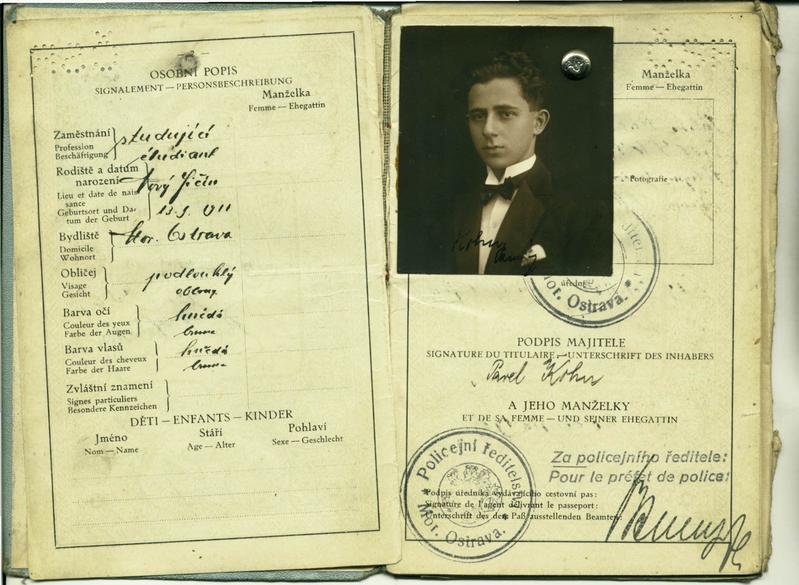 OSOBNÍ POPIS
SIGNALEMENT — PERSONSBESCHREIBUNG
Manželka
Femme — Ehegattin
Zaměstnání
Profession
Beschäftigung
studující
étudiant
Rodiště a datum
narození
Lieu et date de nais
sance
Geburtsort und Da-
tum der Geburt
Nový Jičín
1911
Bydliště
Domicile
Wohnort
Mor. Ostrava
Obličej
Visage
Gesicht
podlouhlý
oblong
Barva očí
Couleur des yeux
Farbe der Augen
hnědá
brune
Barva vlasů
Couleur des cheveux
Farbe der Haare
hnědá
brune
Zvláštní znamení
Signes particuliers
Besondere Kennzeichen
DĚTI — ENFANTS — KINDER
Jméno
Nom — Name
Stáří
Age — Alter
Pohlaví
Sexe — Geschlecht
Manželka
Femme — Ehegattin
Fotografie
Kohn
Mor. Ostrava.
PODPIS MAJITELE
SIGNATURE DU TITULAIRE — UNTERSCHRIFT DES INHABERS
Pavel Kohn
A JEHO MANŽELKY
ET DE SA FEMME — UND SEINER EHEGATTIN
Policejní ředitels
Mor. Ostrava.
Za policejního ředitele:
Pour le préfet de police:
Podpis úředníka vydávajícího cestovní pas:
Signature de l'agent délivrant le passeport:
Unterschrift des den Paß ausstellenden Beamten: